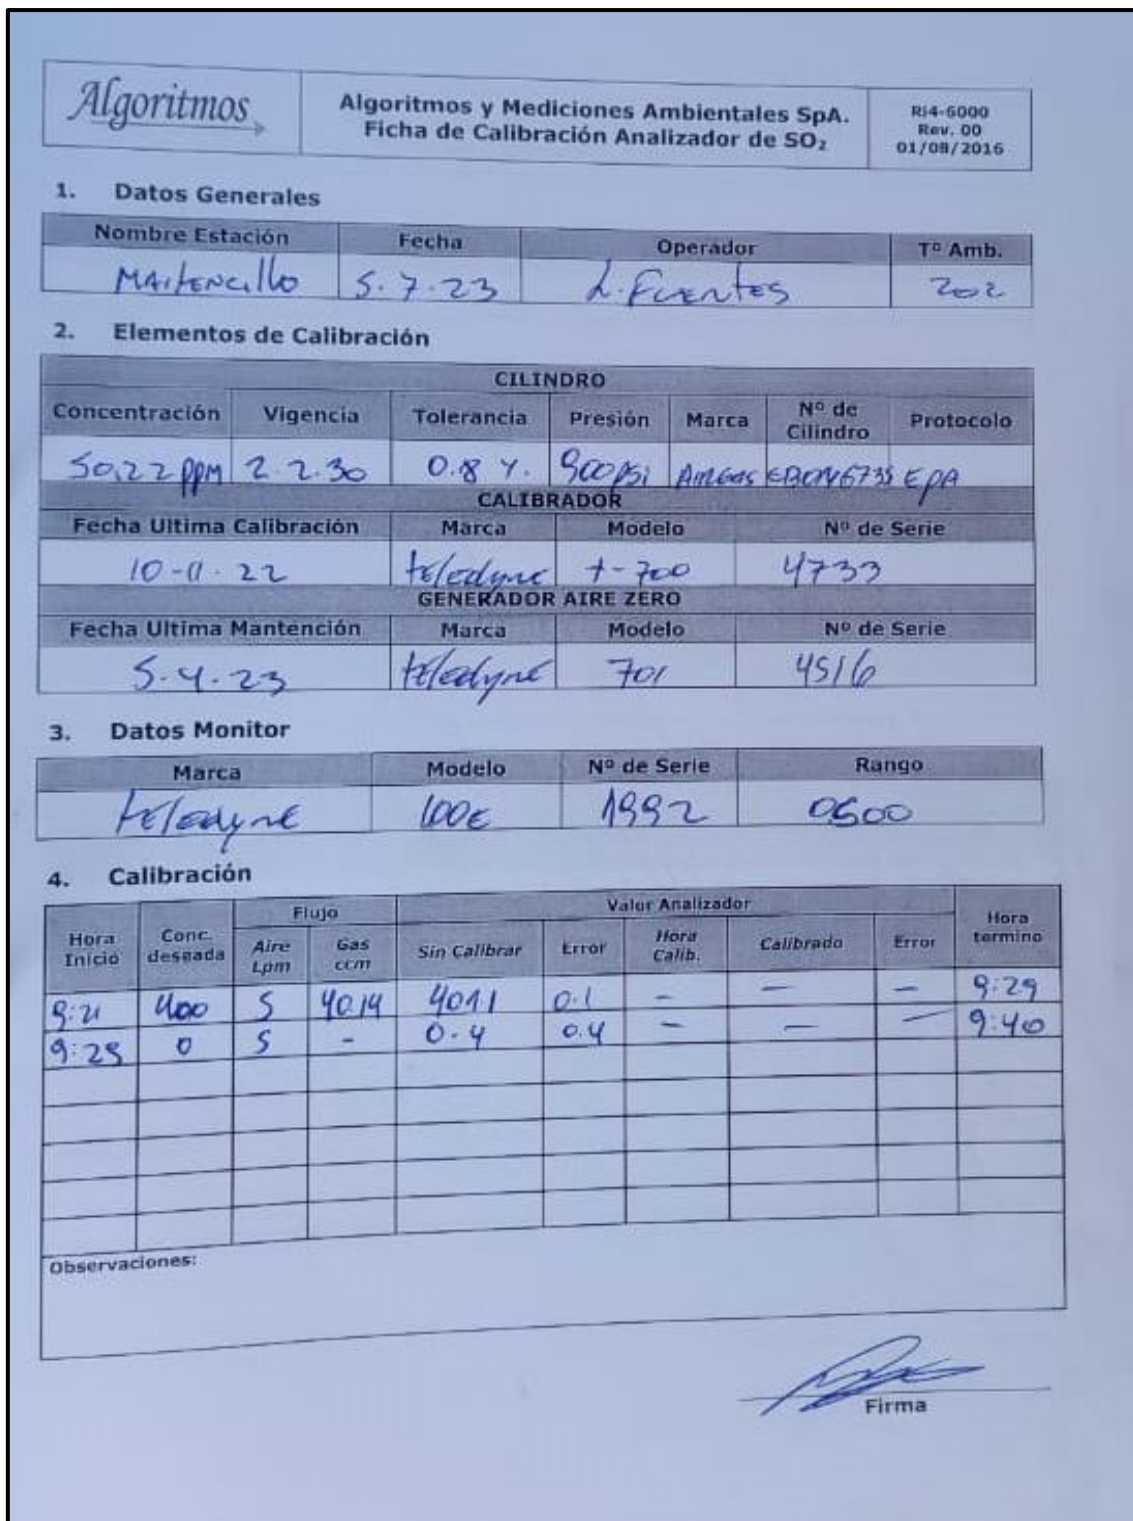 Algoritmos
Algoritmos y Mediciones Ambientales SpA.
Ficha de Calibración Analizador de SO₂
Ri4-6000
Rev. 00
01/08/2016
1. Datos Generales
Nombre Estación Fecha Operador Tº Amb.
MAitENcillo 5.7.23 L. FuENtES 202
2. Elementos de Calibración
CILINDRO
Concentración Vigencia Tolerancia Presión Marca Nº de Cilindro Protocolo
50,22 ppm 2.2.30 0.8 %. 900 psi AiRGas EPA
CALIBRADOR
Fecha Ultima Calibración Marca Modelo Nº de Serie
10-11-22 teledyne t-700 4733
GENERADOR AIRE ZERO
Fecha Ultima Mantención Marca Modelo Nº de Serie
5.4.23 teledyne 701 4516
3. Datos Monitor
Marca Modelo Nº de Serie Rango
teledyne 100E 1992 0500
4. Calibración
Flujo Valor Analizador
Hora Inicio Conc. deseada Aire Lpm Gas ccm Sin Calibrar Error Hora Calib. Calibrado Error Hora termino
9:21 400 5 40.14 401.1 0.1 - - - 9:29
9:29 0 5 - 0.4 0.4 - - - 9:40
Observaciones:
Firma